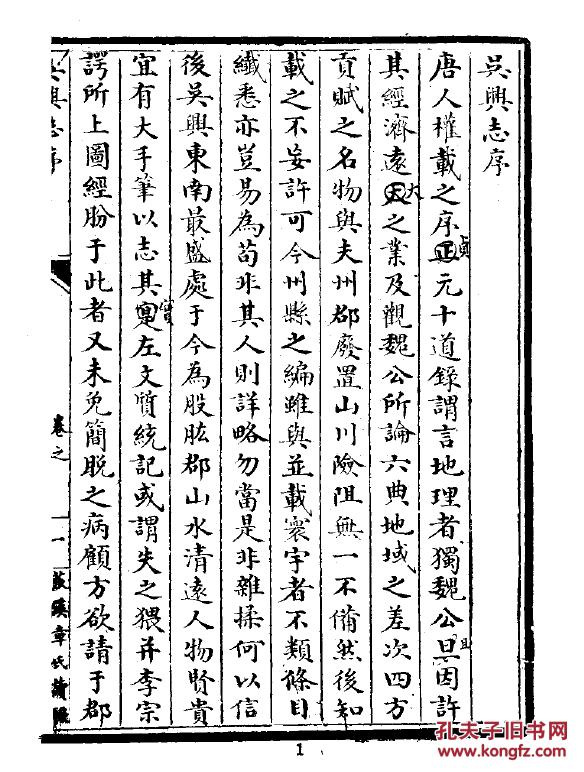 吳興志序
唐人權載之序正貞元十道錄謂言地理者獨魏公旦且因許
其經濟遠天大之業及觀魏公所論六典地域之差次四方
貢賦之名物與夫州郡廢置山川險阻無一不備然後知
載之不妄許可今州縣之編雖與並載寰宇者不類條目
纖悉亦豈易為苟非其人則詳略勿當是非雜揉何以信
後吳興東南最盛處于今為股肱郡山水清遠人物賢貴
宜有大手筆以志其寔實左文質統記或謂失之猥并李宗
諤所上圖經肦于此者又未免簡脫之病顧方欲請于郡
吳興志序
卷之
一
章氏讀
1
孔夫子旧书网
www.kongfz.com